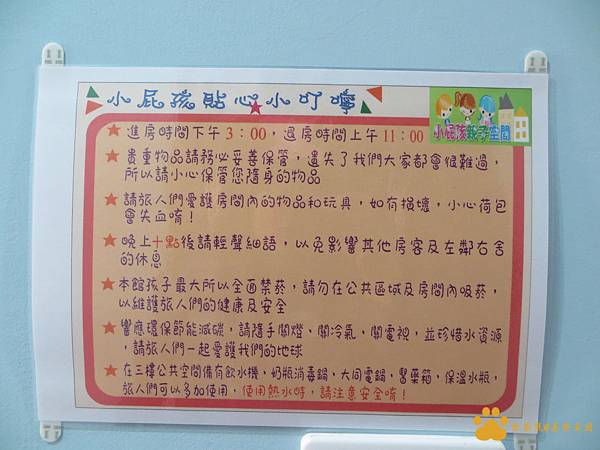 小屁孩貼心小叮嚀
小屁孩親子空間
進房時間下午3:00,退房時間上午11:00
貴重物品請務必妥善保管,遺失了我們大家都會很難過,
所以請小心保管您隨身的物品
請旅人們愛護房間內的物品和玩具,如有損壞,小心荷包
會失血唷!
晚上十點後請輕聲細語,以免影響其他房客及左鄰右舍
的休息
本館孩子最大所以全面禁菸,請勿在公共區域及房間內吸菸,
以維護旅人們的健康及安全
響應環保節能減碳,請隨手關燈、關冷氣、關電視,並珍惜水資源
,請旅人們一起愛護我們的地球
在三樓公共空間備有飲水機、奶瓶消毒鍋、大同電鍋、醫藥箱、保溫水瓶,
旅人們可以多加使用,使用熱水時,請注意安全唷!